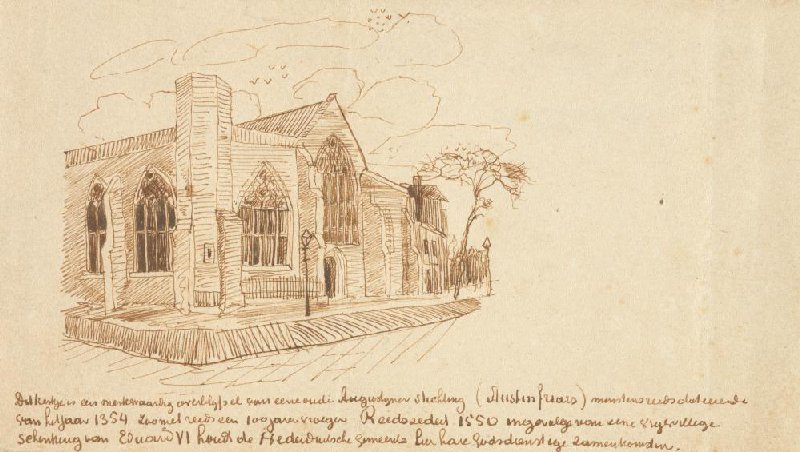 Dit kerkje is een merkwaardig overblijfsel van eene oude Augustijner stichting (Austin friars) minstens reeds dateerende
van het jaar 1354 zoo niet reeds een 100 jaren vroeger Reeds sedert 1550 ingevolge van eene vrijwillige
schenking van Eduard VI houdt de Nederduitsche Gemeente hier hare Godsdienstige zamenkomsten.